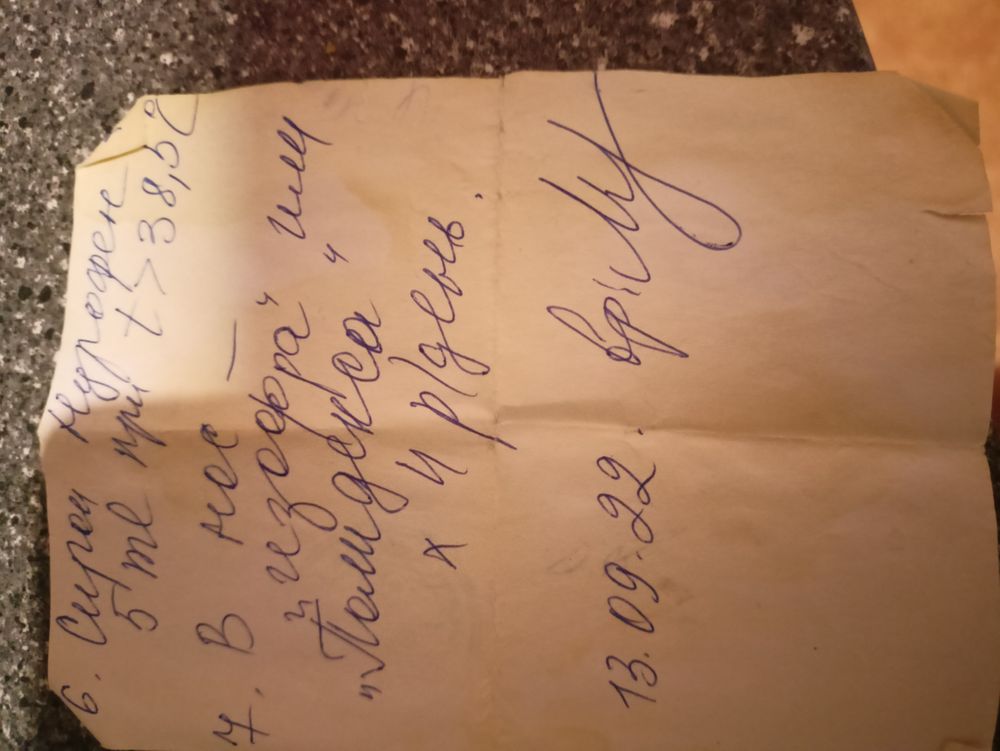 6. Сироп нурофен
5 ml при t > 38,5°
7. В нос —
"изофра" или
"Полидекса"
х 4 р/день.
13.09.22. вр.